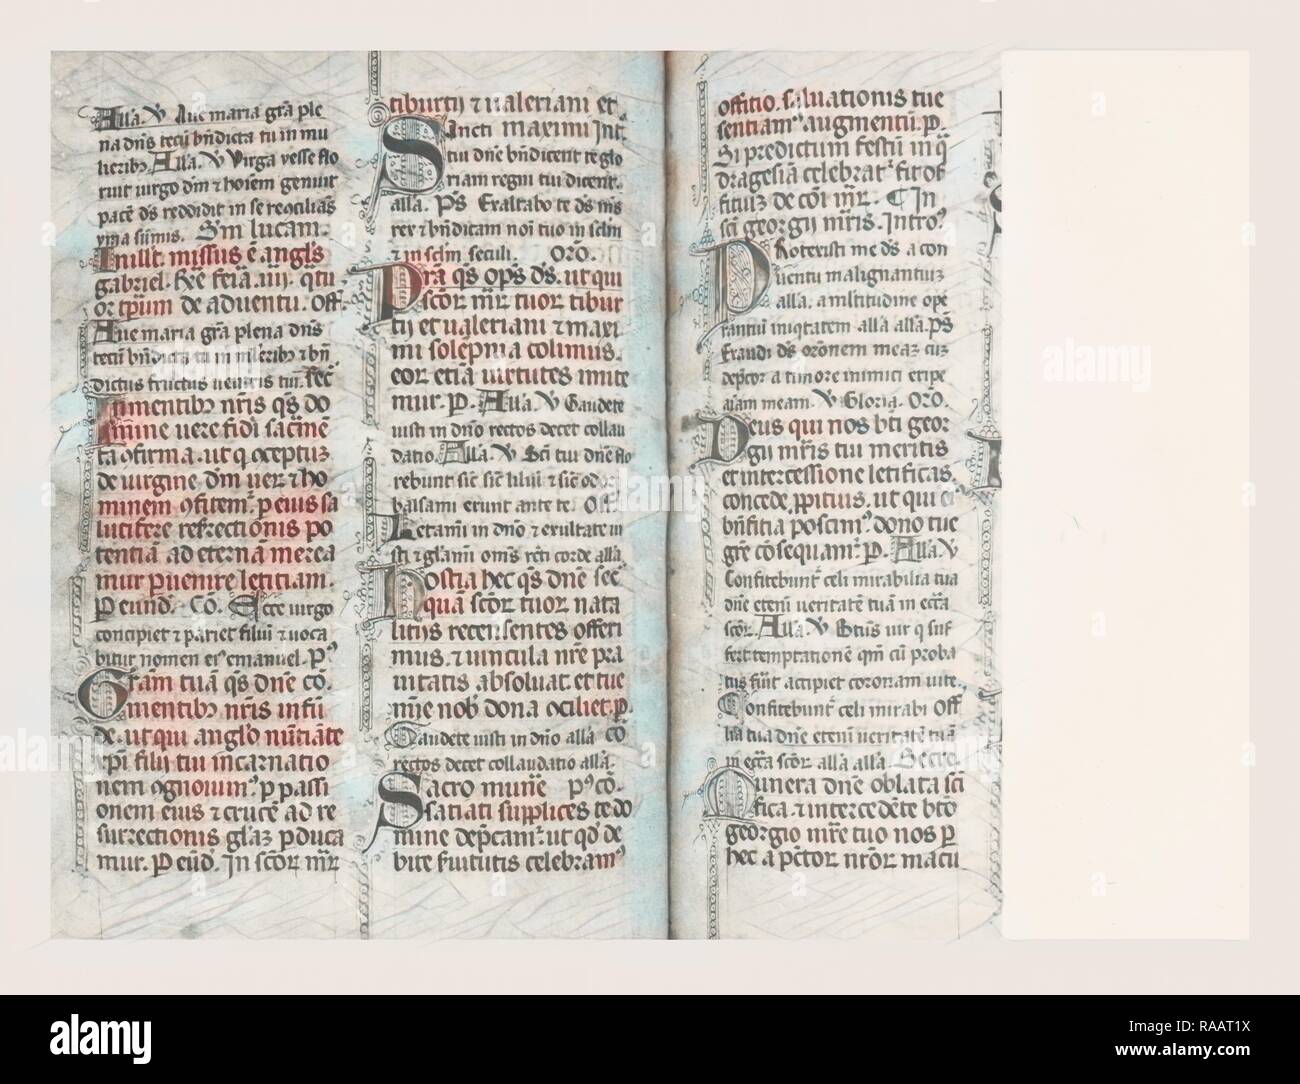 Alla. V Aue maria gr̃a ple
na dñs tecũ bñdicta tu in mu
lierib9 Alla. V Virga yesse flo
ruit uirgo dm̃ et hoĩem genuit
pacẽ ds̃ reddidit in se recõcilias
yma sũmis. Sm̃ lucam.
In illt̃. missus ẽ angl̃s
gabriel. Hẽ feĩa .iiij. q̃tu
or tp̃um de aduentu. Off.
Aue maria gr̃a plena dñs
tecũ bñdicta tu in mĩlerib9 et bñ
dictus fructus uentris tui. Secr̃
In mentib9 nr̃is q̃s do
mine uere fidi sacr̃mẽ
ta cõfirma. ut q̃ cõceptuz
de uirgine dm̃ uer̃ et ho
minem cõfitem̃. p̃ eius sa
lutifere resrectionis po
tentiã ad eternã merea
mur puenire letitiam.
P eund̃. Co. Ecce uirgo
concipiet et pariet filiũ et uoca
bitur nomen ei9 emanuel. P9
Gr̃am tuã q̃s dñe co.
mentib9 nr̃is infũ
de. ut qui anglo nũtiãte
xp̃i filij tui incarnatio
nem cognouim9. p passi
onem eius et crucẽ ad re
surrectionis gl̃az pduca
mur. P eũd̃. In scõr mr̃
tiburtij et ualeriani et
Sancti maximi Int̃.
Sc̃i tui dñe bñdicent te glo
riam regni tui dicent.
alla. Ps̃ Exaltabo te ds̃ m̃s
rex et bñdicam noĩ tuo in sclm̃
et in sclm̃ seculi. Orõ.
Pr̃a q̃s op̃s ds̃. ut qui
scõr mr̃ tuor tibur
tij et ualeriani et maxi
mi solẽpnia colimus.
eor etiã uirtutes imite
mur. P. Alla. V Gaudete
iusti in dño rectos decet collau
datio. Alla. V Sc̃i tui dñe flo
rebunt sic̃ sic̃ liliũ et sic̃ odor
balsami erunt ante te. Off.
Letami in dño et exultate iu
sti et gl̃ami om̃s rc̃ti corde alla.
Hostia hec q̃s dñe sec̃
quã scõr tuor nata
litijs recensentes offeri
mus. et uincula nr̃e pra
uitatis absoluat. et tue
mie nob̃ dona cõciliet. p.
Gaudete iusti in dño alla Co
rectos decet collaudatio alla.
Sacro mune P9 co.
satiati supplices te do
mine dep̃cam̃. ut qd̃ de
bite fuitutis celebram9
offitio. saluationis tue
sentiam9 augmentũ. P.
Si predictum festũ in q̃
dragesiã celebrat̃ fit of
fitiuz de cõi mr̃. In
sc̃i georgij mr̃is. Intro9
Protexisti me ds̃ a con
uentu malignantiuz
alla. a ml̃titudine ope
rantiũ iniq̃tatem alla alla. Ps̃
Exaudi ds̃ orõnem meaz cuz
dep̃cor a timore inimici eripe
aĩam meam. V Gloria. Orõ.
Deus qui nos bt̃i geor
gij mr̃is tui meritis
et intercessione letificas.
concede. ppitius. ut qui ei9
bñfitia poscim9. dono tue
gr̃e cõsequam̃. P. Alla. V
Confitebunt̃ celi mirabilia tua
dñe etenĩ ueritatẽ tuã in ecc̃a
scõr. Alla. V Bt̃us uir q̃ suf
fert temptationẽ qm̃ cũ proba
tus fũit accipiet coronam uite.
Confitebunt̃ celi mirabi Off
lia tua dñe etenĩ ueritatẽ tuã
in ecc̃a scõr alla alla. Secre.
Munera dñe oblata sc̃i
fica. et intercedẽte bt̃o
georgio mr̃e tuo nos p
hec a pc̃tor nr̃or macu
alamy
Image ID: RAAT1X
www.alamy.com